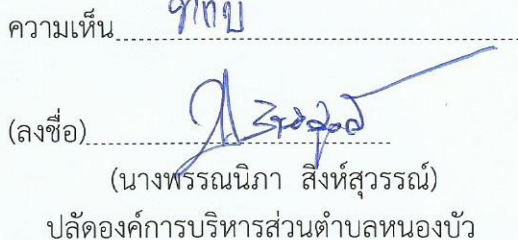 ความเห็น
(ลงชื่อ)
(นางพรรณนิภา สิงห์สุวรรณ์)
ปลัดองค์การบริหารส่วนตำบลหนองบัว